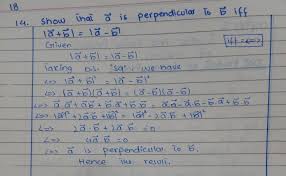 18
14. Show that a⃗ is perpendicular to b⃗ iff
|a⃗ + b⃗| = |a⃗ - b⃗|
Given iff = <=>
|a⃗ + b⃗| = |a⃗ - b⃗|
Taking b.s. "sq" we have
<=> |a⃗ + b⃗|² = |a⃗ - b⃗|²
<=> (a⃗ + b⃗)(a⃗ + b⃗) = (a⃗ - b⃗)(a⃗ - b⃗)
<=> a⃗.a⃗ + a⃗.b⃗ + b⃗.a⃗ + b⃗.b⃗ = a⃗.a⃗ - a⃗.b⃗ - b⃗.a⃗ + b⃗.b⃗
<=> |a⃗|² + 2a⃗.b⃗ + |b⃗|² = |a⃗|² - 2a⃗.b⃗ + |b⃗|²
<=> 2a⃗.b⃗ + 2a⃗.b⃗ = 0
<=> 4a⃗.b⃗ = 0
<=> a⃗ is perpendicular to b⃗.
Hence the result.